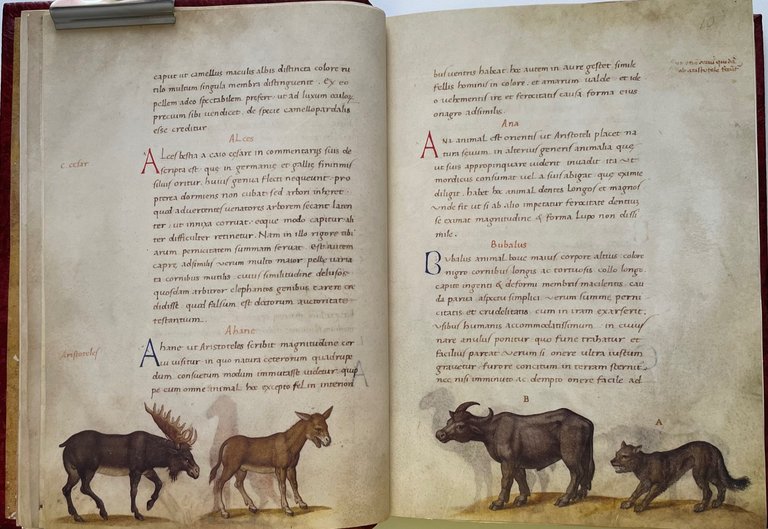 caput ut camellus maculis albis distincta colore ru
tilo multum singula membra distinguente. Ex eo
pellem adeo spectabilem prefert, ut ad luxum oculos
precium sibi vendicet. de specie camellopardalis
esse creditur
ALces
C. cesar
ALces bestia a caio cesare in commentarijs suis de
scripta est. que in germanie et gallie finitimis
silvis oritur, huius genua flecti nequeunt. pro
pterea dormiens non cubat sed arbori inheret.
quod advertentes venatores arborem secant laten
ter, ut innixa corruat. eoque modo capitur, ali
ter difficulter retinetur. Nam in illo rigore tibi
arum pernicitatem summam servat. Est autem
capre adsimilis verum multo maior pelle varia
ta cornibus mutilis. cuius similitudine delusos
quosdam arbitror elephantos genibus carere cre
didisse. quod falsum est doctorum auctoritate
testantium.
Ahane
Aristoteles
Ahane ut Aristoteles scribit magnitudine cer
vi visitur in quo natura ceterorum quadrupe
dum consuetum modum immutasse videtur. quip
pe cum omne animal hoc excepto fel in interiori
bus ventris habeat. hoc autem in aure gestet. simile
fellis hominis in colore. et amarum valde et ide
o vehementis ire et ferocitatis causa. forma eius
onagro adsimilis.
Ana
Ana animal est orientis ut Aristoteli placet na
tura sevum. in alterius generis animalia que
ut suis appropinquare videnit invadit ita ut
mordicus consumat vel a suis abigat. que eximie
diligit. habet hoc animal dentes longos et magnos
unde fit ut si ab alio impetatur ferocitate dentium
se eximat magnitudine & forma Lupo non dissi
mile.
Bubalus
Bubalus animal bove maius corpore altius. colore
nigro cornibus longis ac tortuosis. collo longo.
capite ingenti & deformi membris macilentis. cau
da parva aspectu simplici. verum summe perni
citatis et crudelitatis cum in iram exarserit.
usibus humanis accommodatissimum. in cuius
nare anulus ponitur quo fune trahatur et
facilius pareat. verum si onere ultra iustum
gravetur, furore concitum in terram sternitur
nec nisi imminuto ac dempto onere facile ad
B
A